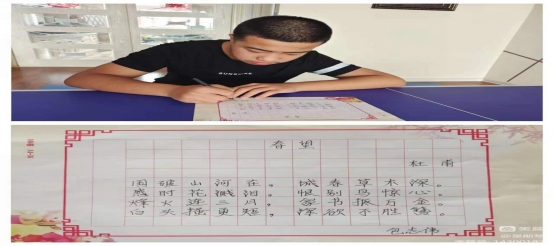 春望
杜甫
国破山河在，城春草木深。
感时花溅泪，恨别鸟惊心。
烽火连三月，家书抵万金。
白头搔更短，浑欲不胜簪。
包志伟